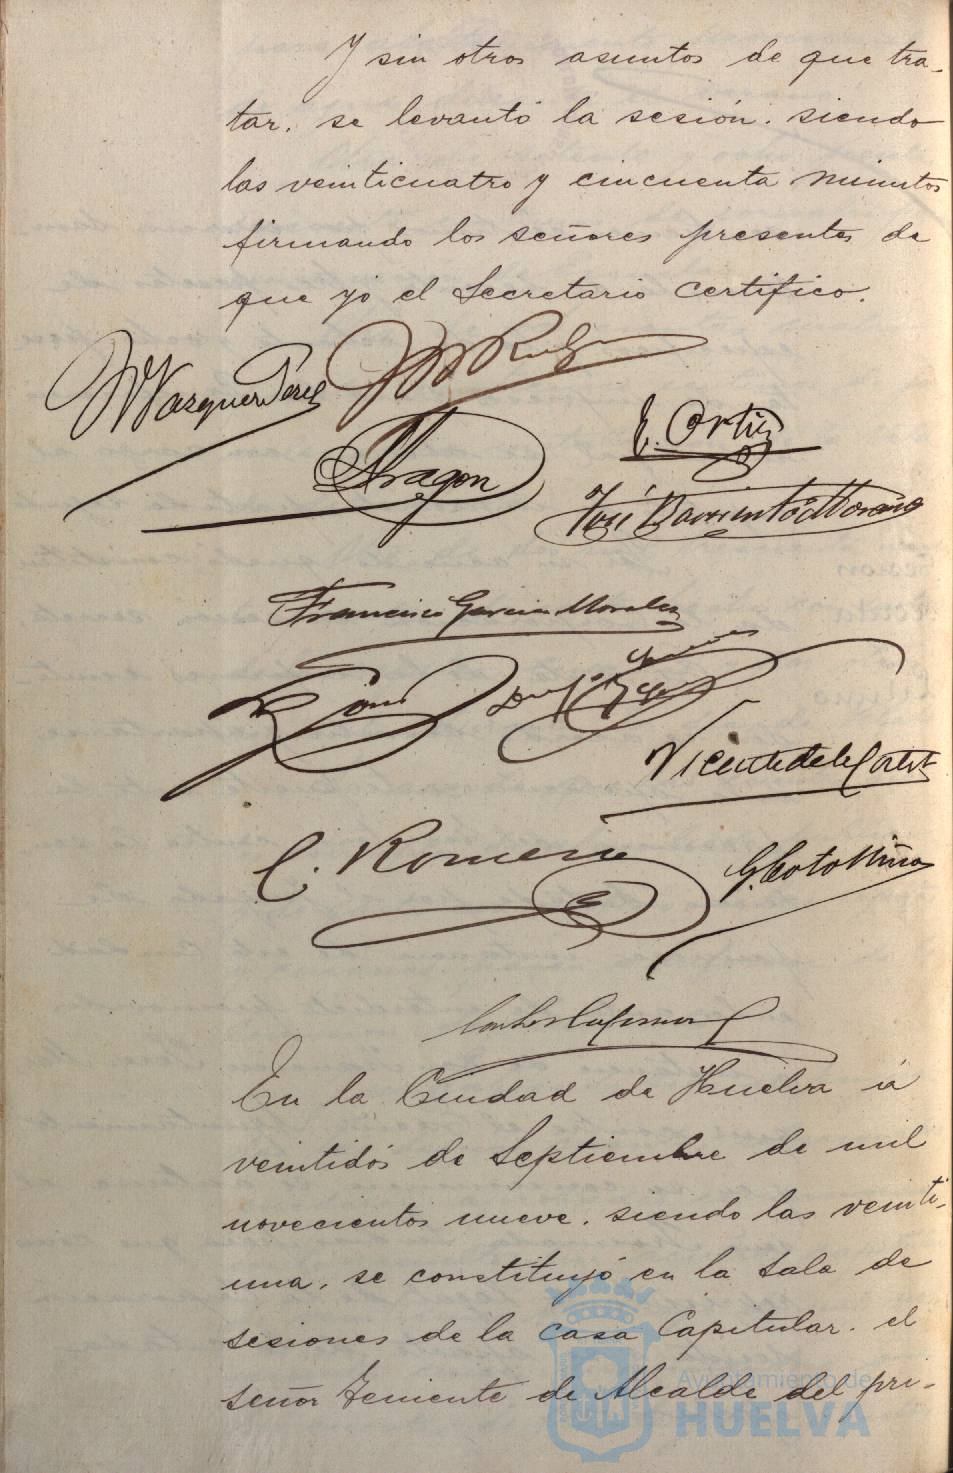 Y sin otros asuntos de que tra-
tar, se levantó la sesión, siendo
las veinticuatro y cincuenta minutos
firmando los señores presentes de
que yo el Secretario certifico.
Vazquez Perez
Aragon
E. Ortiz
José Barrientos Moreno
Francisco Garcia Morales
Vicente de la Corte
C. Romero
G. Coto Niño
En la Ciudad de Huelva á
veintidós de Septiembre de mil
novecientos nueve, siendo las veinti-
una, se constituyó en la Sala de
sesiones de la casa Capitular, el
señor Teniente de Alcalde del pri-
Ayuntamiento de
HUELVA